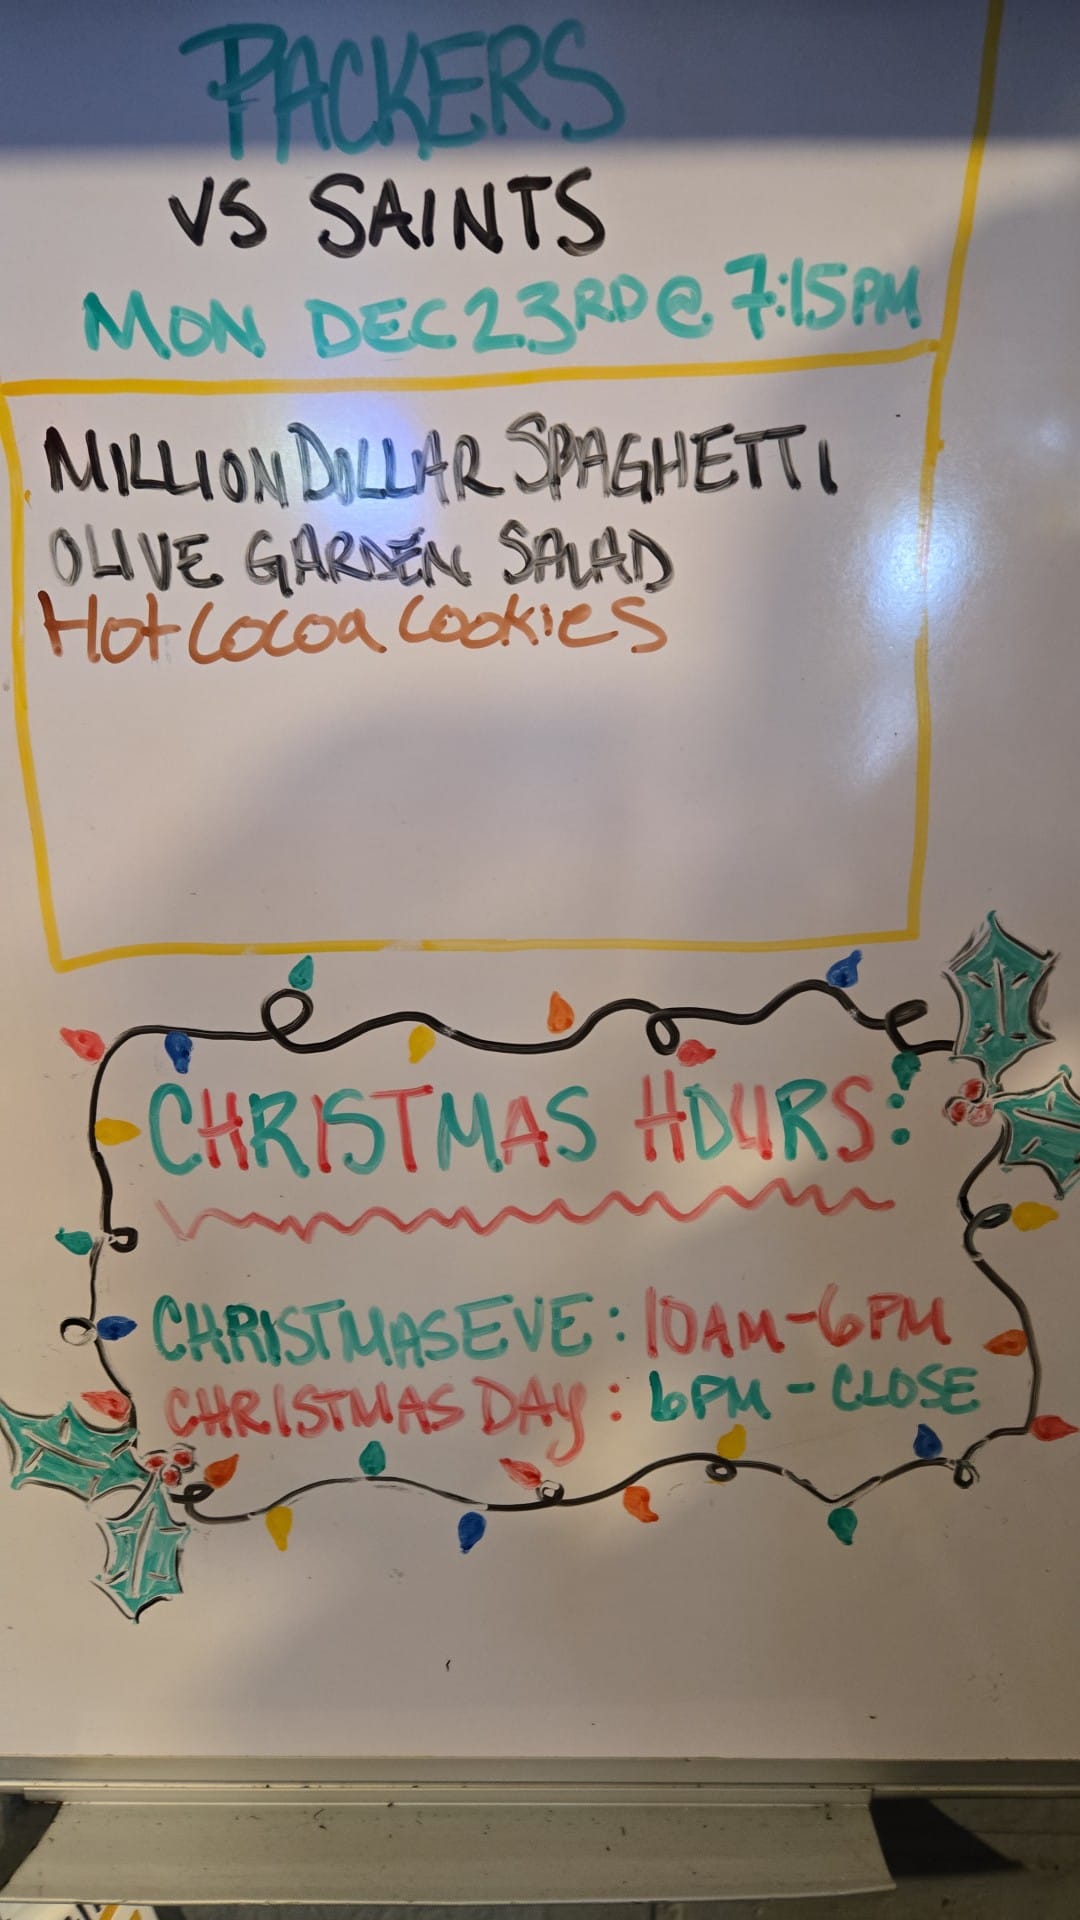 PACKERS
VS SAINTS
MON DEC 23RD @ 7:15PM
MILLION DOLLAR SPAGHETTI
OLIVE GARDEN SALAD
Hot Cocoa Cookies
CHRISTMAS HOURS:
CHRISTMAS EVE: 10AM-6PM
CHRISTMAS DAY: 6PM - CLOSE